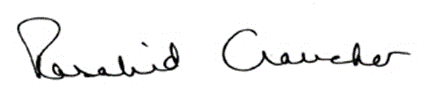 Rosalind Croucher